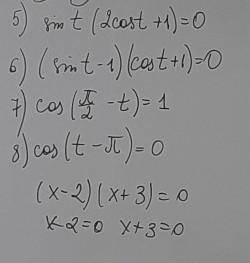 5) sin t (2cost +1)=0
6) (sint-1)(cost+1)=0
7) cos(π/2 -t)=1
8) cos(t-π)=0
(x-2)(x+3)=0
x-2=0 x+3=0